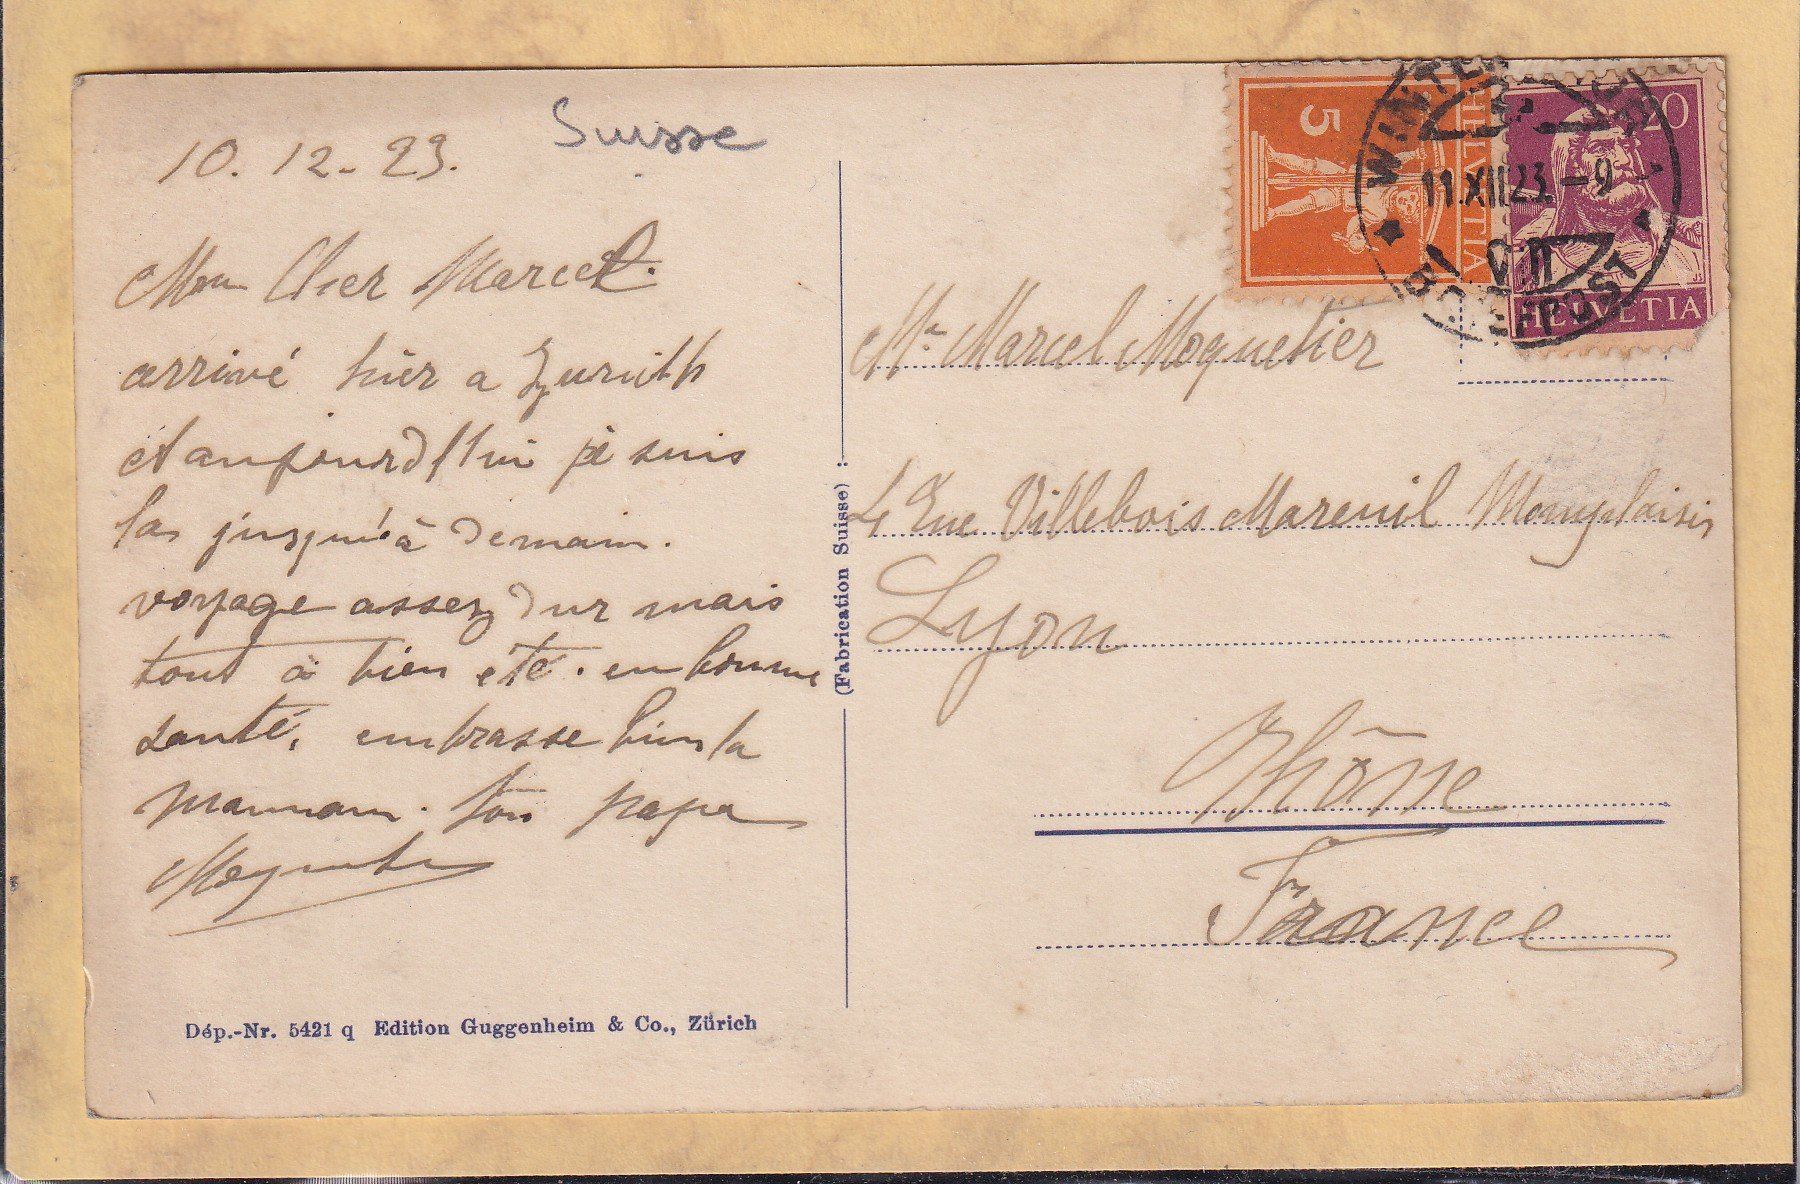 10. 12 - 23.
Suisse
Mon Cher Marcel.
arrivé hier a Zurich
et aujourd'hui je suis
las jusqu'à demain.
voyage assez dur mais
tout à bien été. en bonne
santé, embrasse bien ta
mamam. ton papa
(Fabrication Suisse)
Dép.-Nr. 5421 q Edition Guggenheim & Co., Zürich
5 HELVETIA
20
HELVETIA
WINTER
11.XII.23.-9
BRIEFPOST
Mr Marcel Moquetier
Rue Villebois Mareuil Monplaisir
Lyon
Rhône
France